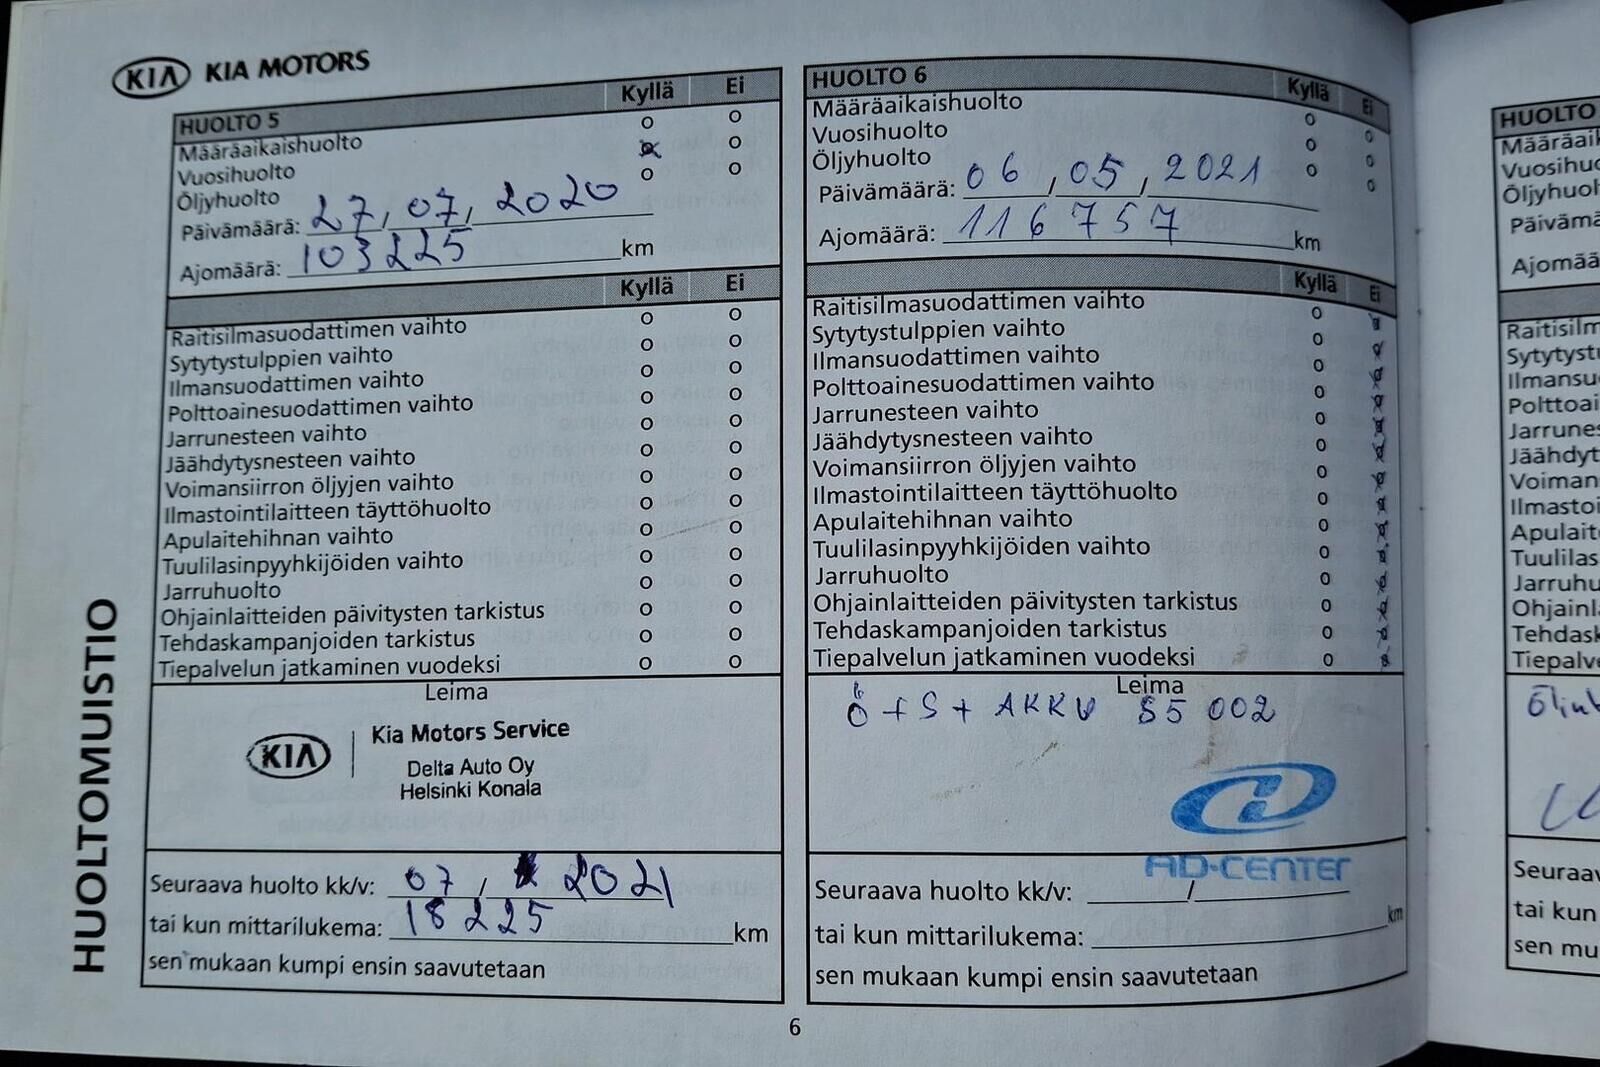 KIA KIA MOTORS
HUOLTO 5 Kyllä Ei
Määräaikaishuolto o o
Vuosihuolto x o
Öljyhuolto o o
Päivämäärä: 27, 07, 2020
Ajomäärä: 103225 km
Kyllä Ei
Raitisilmasuodattimen vaihto o o
Sytytystulppien vaihto o o
Ilmansuodattimen vaihto o o
Polttoainesuodattimen vaihto o o
Jarrunesteen vaihto o o
Jäähdytysnesteen vaihto o o
Voimansiirron öljyjen vaihto o o
Ilmastointilaitteen täyttöhuolto o o
Apulaitehihnan vaihto o o
Tuulilasinpyyhkijöiden vaihto o o
Jarruhuolto o o
Ohjainlaitteiden päivitysten tarkistus o o
Tehdaskampanjoiden tarkistus o o
Tiepalvelun jatkaminen vuodeksi o o
Leima
KIA Kia Motors Service
Delta Auto Oy
Helsinki Konala
Seuraava huolto kk/v: 07 / 2021
tai kun mittarilukema: 18225 km
sen mukaan kumpi ensin saavutetaan
HUOLTOMUISTIO
HUOLTO 6 Kyllä Ei
Määräaikaishuolto o o
Vuosihuolto o o
Öljyhuolto o o
Päivämäärä: 06, 05, 2021
Ajomäärä: 116757 km
Kyllä Ei
Raitisilmasuodattimen vaihto o
Sytytystulppien vaihto o
Ilmansuodattimen vaihto o
Polttoainesuodattimen vaihto o
Jarrunesteen vaihto o
Jäähdytysnesteen vaihto o
Voimansiirron öljyjen vaihto o
Ilmastointilaitteen täyttöhuolto o
Apulaitehihnan vaihto o
Tuulilasinpyyhkijöiden vaihto o
Jarruhuolto o
Ohjainlaitteiden päivitysten tarkistus o
Tehdaskampanjoiden tarkistus o
Tiepalvelun jatkaminen vuodeksi o
Leima
Ö + S + AKKU 55 002
AD-CENTER
Seuraava huolto kk/v: /
tai kun mittarilukema: km
sen mukaan kumpi ensin saavutetaan
6
HUOLTO
Määräaik
Vuosihuo
Öljyhuol
Päivämä
Ajomää
Raitisilm
Sytytyst
Ilmansu
Polttoai
Jarrunes
Jäähdyt
Voiman
Ilmasto
Apulait
Tuulilas
Jarruhu
Ohjainl
Tehdask
Tiepalv
Seuraav
tai kun
sen mu